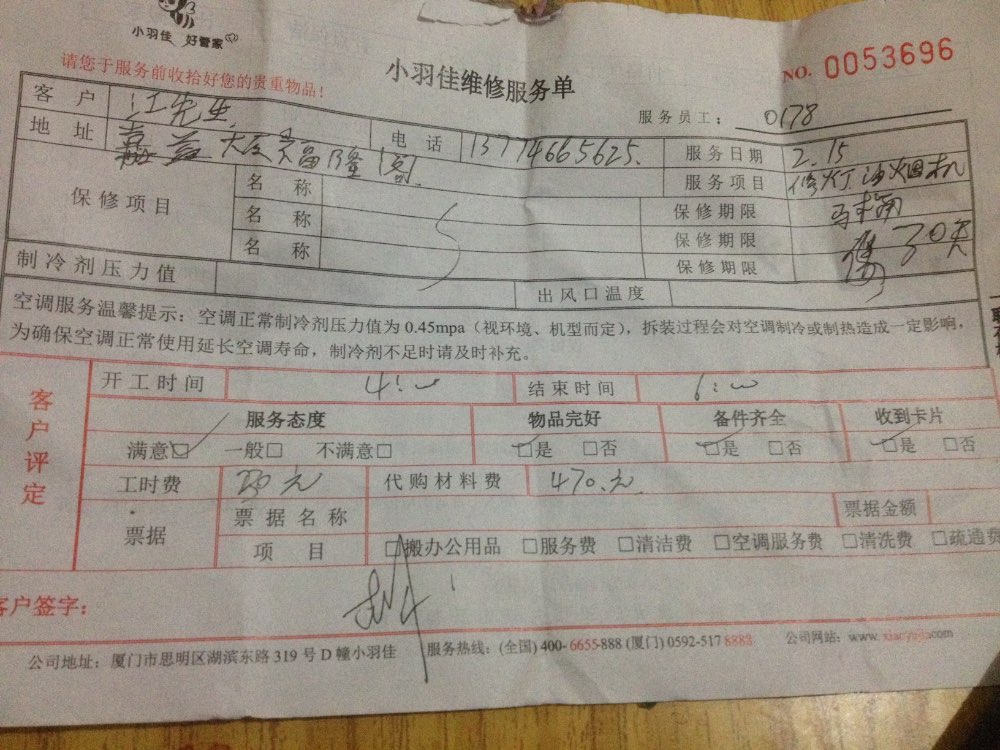 小羽佳 好管家
请您于服务前收拾好您的贵重物品！
小羽佳维修服务单
NO. 0053696
服务员工： 0178
客户 江先生
地址 嘉益大厦福隆阁 电话 13774665625. 服务日期 2.15
服务项目 修灯 油烟机
保修项目 名称 保修期限
名称 保修期限 30天
名称 保修期限
制冷剂压力值 出风口温度
空调服务温馨提示：空调正常制冷剂压力值为 0.45mpa（视环境、机型而定），拆装过程会对空调制冷或制热造成一定影响，
为确保空调正常使用延长空调寿命，制冷剂不足时请及时补充。
客户评定
开工时间 4:00 结束时间 6:00
服务态度 物品完好 备件齐全 收到卡片
满意□ 一般□ 不满意□ □是 □否 □是 □否 □是 □否
工时费 元 代购材料费 470.元
票据 票据名称 票据金额
项目 □搬办公用品 □服务费 □清洁费 □空调服务费 □清洗费 □疏通费
客户签字：
公司地址：厦门市思明区湖滨东路 319 号 D 幢小羽佳 服务热线：(全国) 400-6655-888 (厦门) 0592-517 8883 公司网站：www.xiaoyujia.com